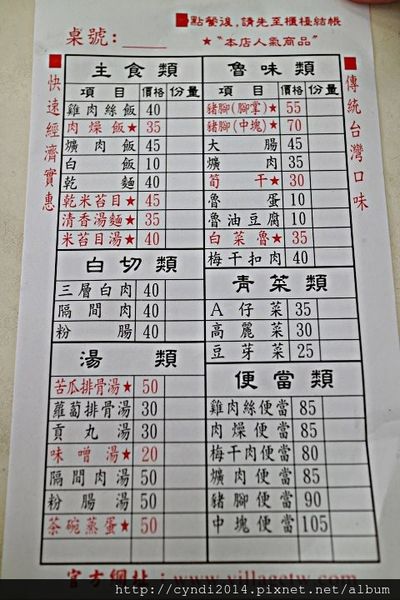 點餐後，請先至櫃檯結帳
桌號：
★"本店人氣商品"
快速經濟實惠
傳統台灣口味
主食類
項目 價格 份量
雞肉絲飯 40
肉燥飯★ 35
爌肉飯 45
白飯 10
乾麵 40
乾米苔目★ 45
清香湯麵★ 35
米苔目湯★ 40
白切類
三層白肉 40
隔間肉 40
粉腸 40
湯類
苦瓜排骨湯★ 50
蘿蔔排骨湯 30
貢丸湯 30
味噌湯★ 20
隔間肉湯 50
粉腸湯 50
茶碗蒸蛋★ 50
魯味類
項目 價格 份量
豬腳(腳掌)★ 55
豬腳(中塊)★ 70
大腸 45
爌肉 35
筍干★ 30
魯蛋 10
魯油豆腐 10
白菜魯★ 35
梅干扣肉 40
青菜類
A仔菜 35
高麗菜 30
豆芽菜 25
便當類
雞肉絲便當 85
肉燥便當 80
梅干肉便當 80
爌肉便當 85
豬腳便當 90
中塊便當 105
官方網址：www.villagetw.com
http://cyndi2014.pixnet.net/album